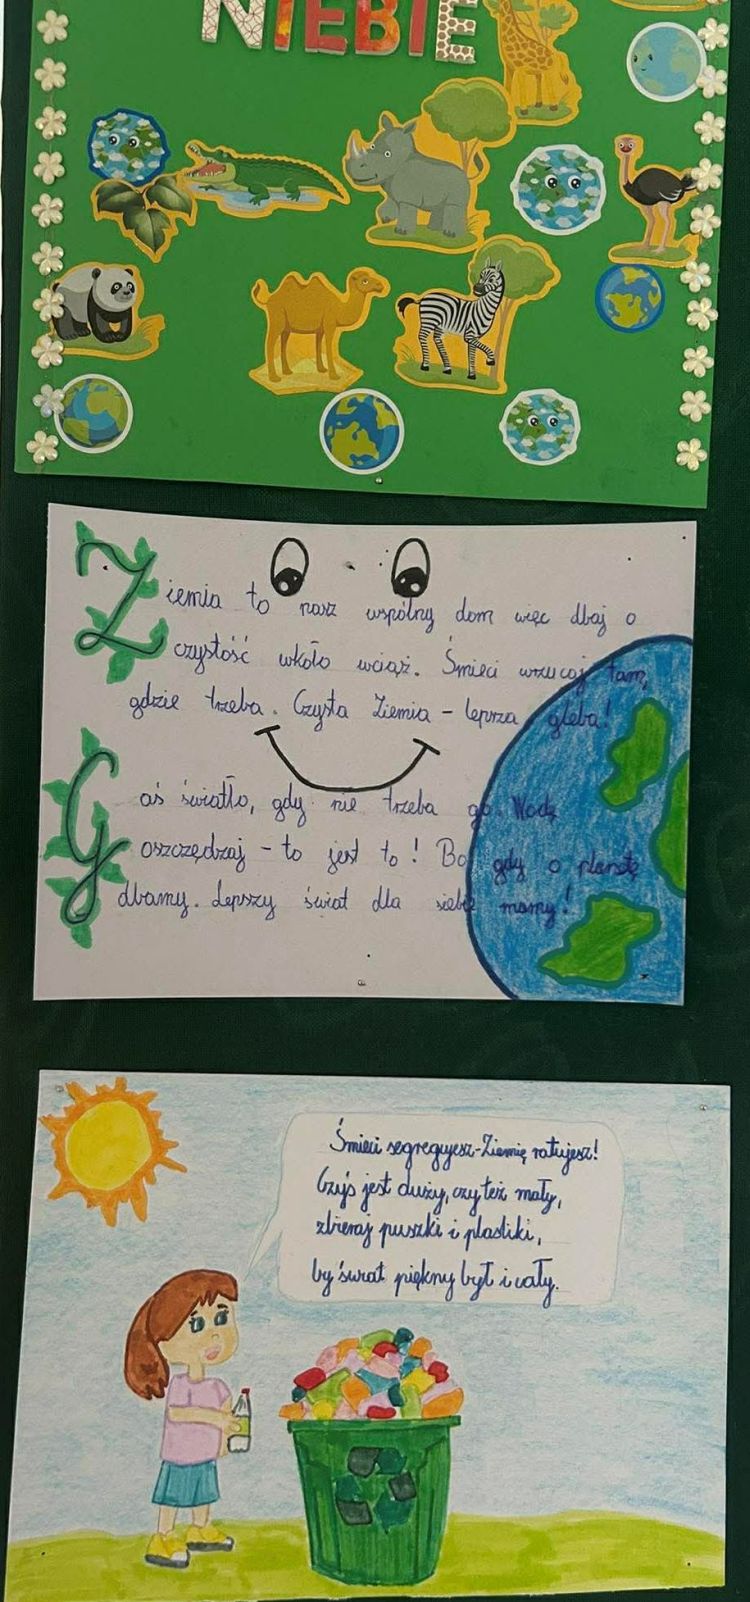 NIEBIE
Ziemia to nasz wspólny dom więc dbaj o
czystość wkoło wciąż. Śmieci wrzucaj tam,
gdzie trzeba. Czysta Ziemia - lepsza gleba!
Gaś światło, gdy nie trzeba go. Wodę
oszczędzaj - to jest to! Bo gdy o planetę
dbamy. Lepszy świat dla siebie mamy!
Śmieci segregujesz-Ziemię ratujesz!
Czyś jest duży, czy też mały,
zbieraj puszki i plastiki,
by świat piękny był i cały.